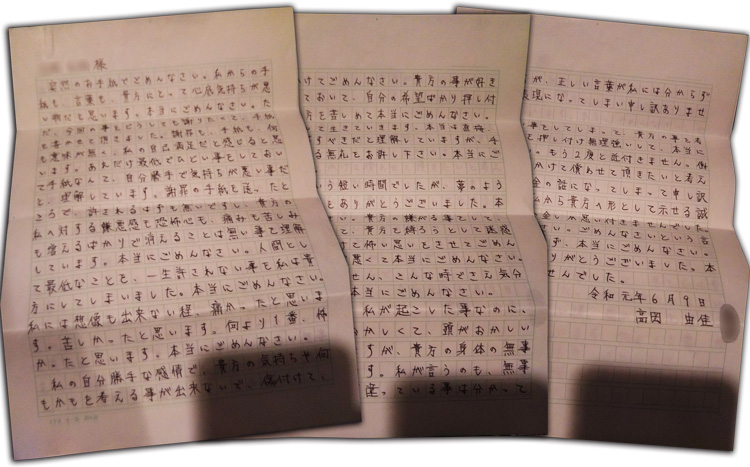 様
突然のお手紙でごめんなさい。私からの手
紙も、言葉も、貴方にとって心底気持ちが悪
い物だと思います。本当にごめんなさい。た
だ、今回の事をどうしても謝りたくて、手紙
を書かせて頂きました。謝罪も、手紙も、何
も意味が無く、私の自己満足だと感じると思
います。あんだけ最低でひどい事をしておい
て手紙なんて、自分勝手で気持ちが悪い事だ
と、理解しています。謝罪の手紙を送ったと
ころで、許されるはずも無いですし、貴方の
私へ対する嫌悪感も恐怖心も、痛みも苦しみ
も増えるばかりで消えることは無い事も理解
しています。本当にごめんなさい。人間とし
て最低なことを、一生許されない事を私は貴
方にしてしまいました。本当にごめんなさい。
私には想像も出来ない程、痛かったと思いま
す。苦しかったと思います。何より1番、怖
かったと思います。本当にごめんなさい。
私の自分勝手な感情で、貴方の気持ちや何
もかもを考える事が出来ないで、傷付けて、
けてごめんなさい。貴方の事が好き
おいて、自分の希望ばかり押し付
方を苦しめて本当にごめんなさい。
て生きていきます。本当は直接、
すべきだと理解していますが、手
る無礼をお許し下さい。本当にご
いう短い時間でしたが、夢のよう
もありがとうございました。本
い。貴方の嫌がる事をして、
い。貴方を縛ろうとして迷惑
けて怖い思いをさせてごめん
悪くて本当にごめんなさい。
せん、こんな時でさえ気分
本当にごめんなさい。
私が起こした事なのに、
おかしくて、頭がおかしい
すが、貴方の身体の無事
す。私が言うのも、無事
違っている事は分かって
が、正しい言葉が私には分からず
表現になってしまい申し訳ありませ
事をしてしまって、貴方の事を考
を押し付け無理強いして、本当に
。もう2度と近付きません。働
かけて償わせて頂きたいと考え
金の話になってしまって申し訳
私から貴方へ形として示せる誠
金しか思い付きませんでした。
さい。ごめんなさいという言
ず、本当にごめんなさい。
りがとうございました。本
せんでした。
令和元年6月9日
高岡 由佳